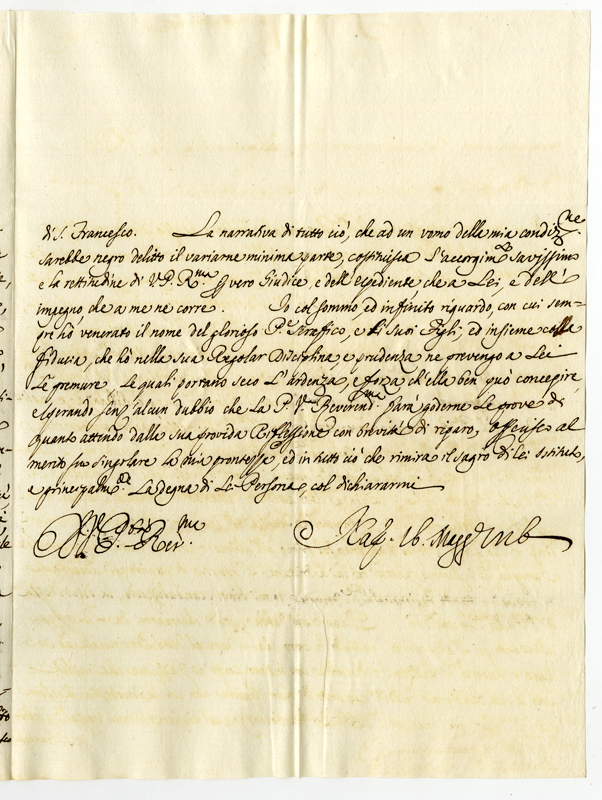 di S. Francesco. La narrativa di tutto ciò, che ad un vomo della mia condiz.ne
sarebbe negro delitto il variarne minima parte, costituisce l'accorgim.to Savissimo
e la rettitudine di V.P. R.ma vero Giudice, e dell'espediente che a Lei, e dell'
impegno che a me ne corre. Io col sommo, ed infinito riguardo, con cui sem=
pre hò venerato il nome del glorioso P.e Seraffico, e di suoi Figli, ed insieme colla
fiducia, che hò nella sua Regolar Disciplina e prudenza ne prevengo a Lei
Le premure, Le quali portano seco L'ardenza, e forza ch'ella ben può concepire,
e sperando senz'alcun dubbio che la P. V.a Reverend.ma farà goderne Le prove di
quanto attendo dalla sua provida Riflessione con brevità di riparo, offerisco al
merito suo singolare La mia prontezza, ed in tutto ciò che rimira il sagro di Lei Istituto,
e principalm.te La degna di Lei Persona, col dichiararmi
Di V. P. Rev.ma 16. Magg.